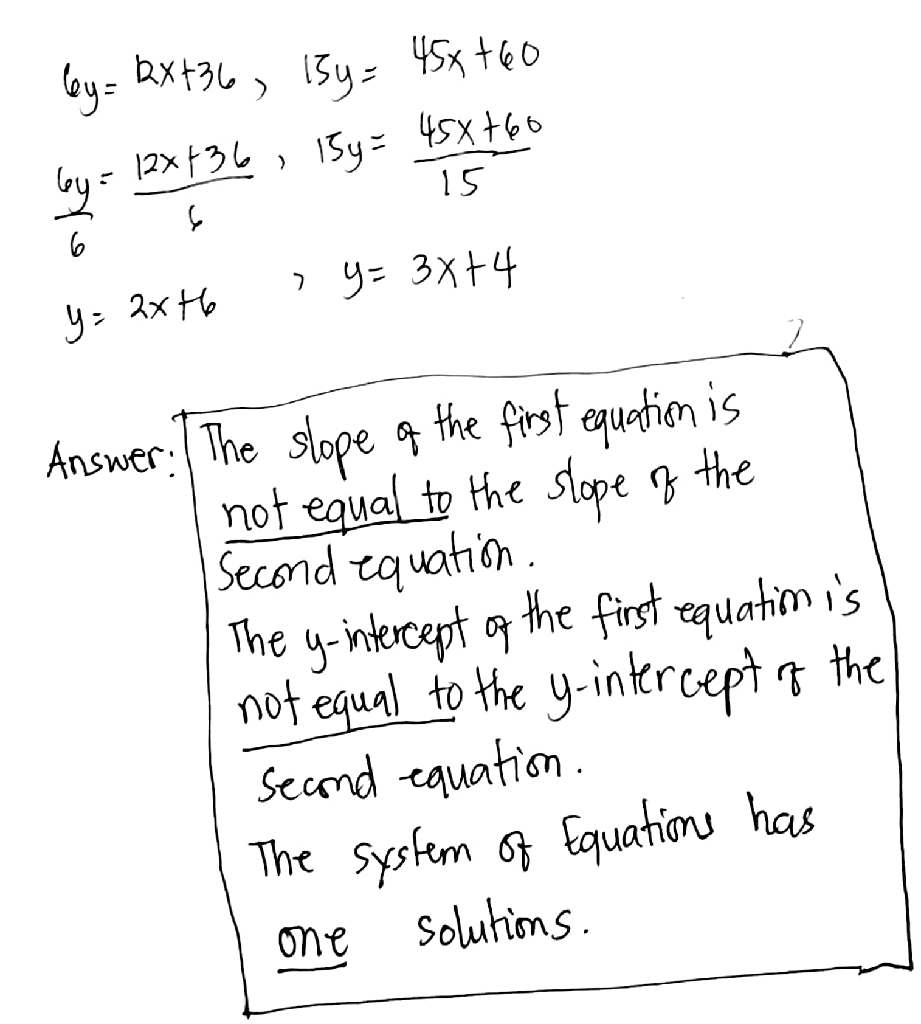 6y = 12x+36 , 15y = 45x+60
6y/6 = 12x+36/6 , 15y = 45x+60/15
y = 2x+6 , y = 3x+4
Answer: The slope of the first equation is
not equal to the slope of the
Second equation.
The y-intercept of the first equation is
not equal to the y-intercept of the
Second equation.
The system of Equations has
one solutions.